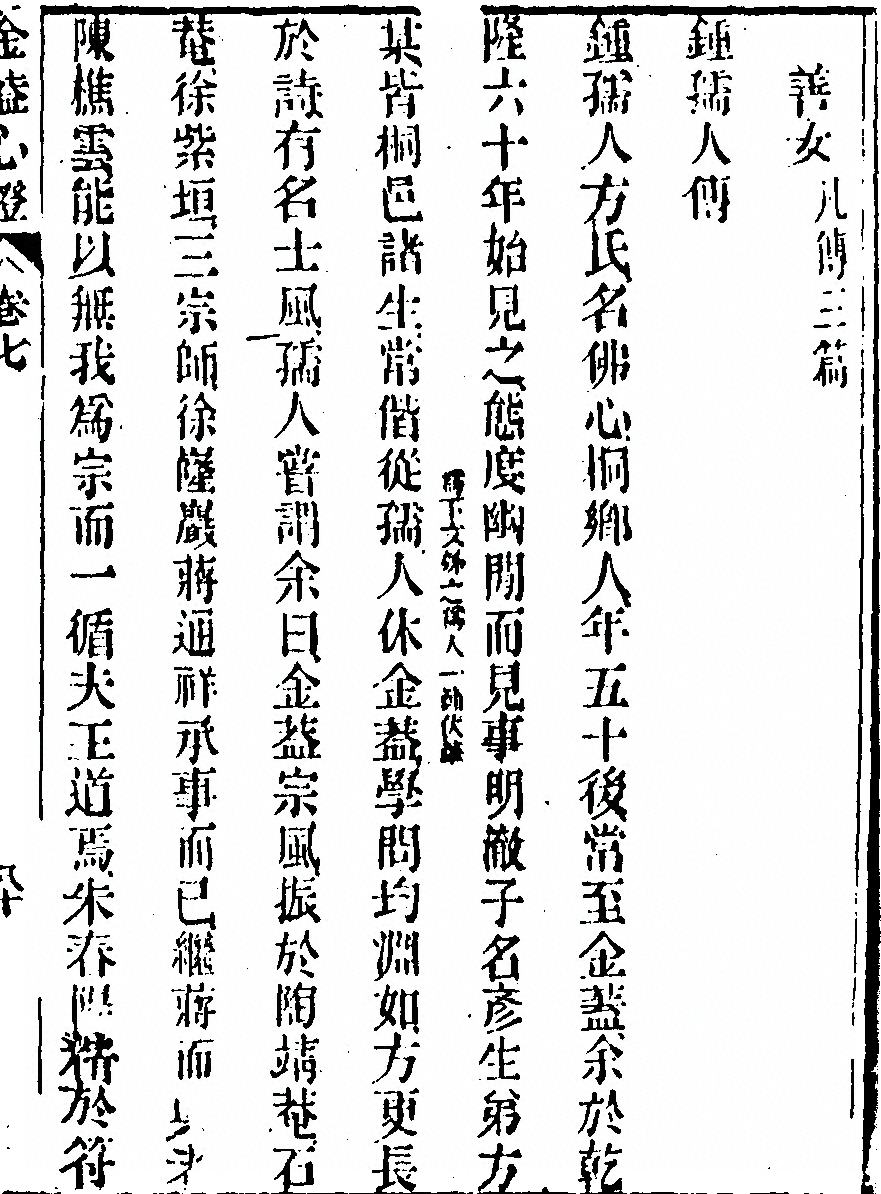 善女凡傳三篇
鍾孺人傳
鍾孺人方氏名佛心桐鄉人年五十後常至金蓋余於乾
隆六十年始見之態度幽閒而見事明徹子名彥生弟方
某皆桐邑諸生常偕從孺人休金蓋學問均淵如方更長
於詩有名士風孺人嘗謂余曰金蓋宗風振於陶靖菴石
菴徐紫垣三宗師徐隆巖蔣通祥承事而已繼蔣而
陳樵雲能以無我為宗而一循夫王道焉朱春陽精於符
金蓋心燈 卷七